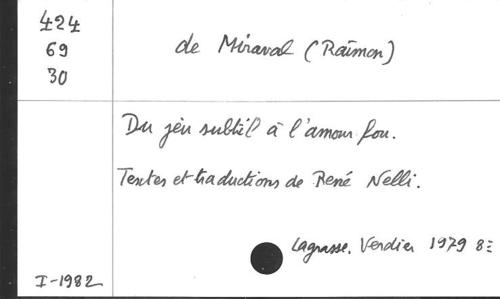 424
69
30
de Miraval (Raimon)
Du jeu subtil à l'amour fou.
Textes et traductions de René Nelli.
Lagrasse. Verdier 1979 8=
I-1982